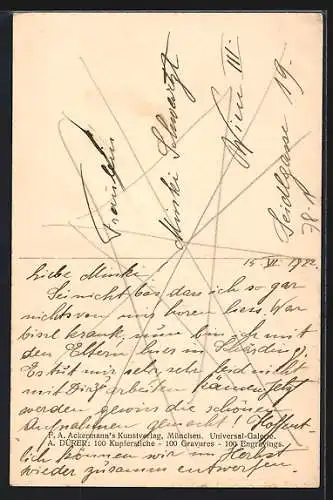 Fräulein
Minski Schwartz
Wien III.
Seidlgasse 19.
15 VI. 1922.
Liebe Minski.
Sei nicht bös dass ich so gar
nichts von mir hören liess. War
bissl krank, nun bin ich mit
den Eltern hier in
Es tut mir sehr, sehr leid nicht
mit Dir arbeiten können. Jetzt
werden gewiss die schönen
Aufnahmen gemacht! Hoffent-
F. A. Ackermann's Kunstverlag, München. Universal-Galerie.
A. DÜRER: 100 Kupferstiche - 100 Gravures - 100 Engravings.
lich können wir im Herbst
wieder zusammen entwerfen.